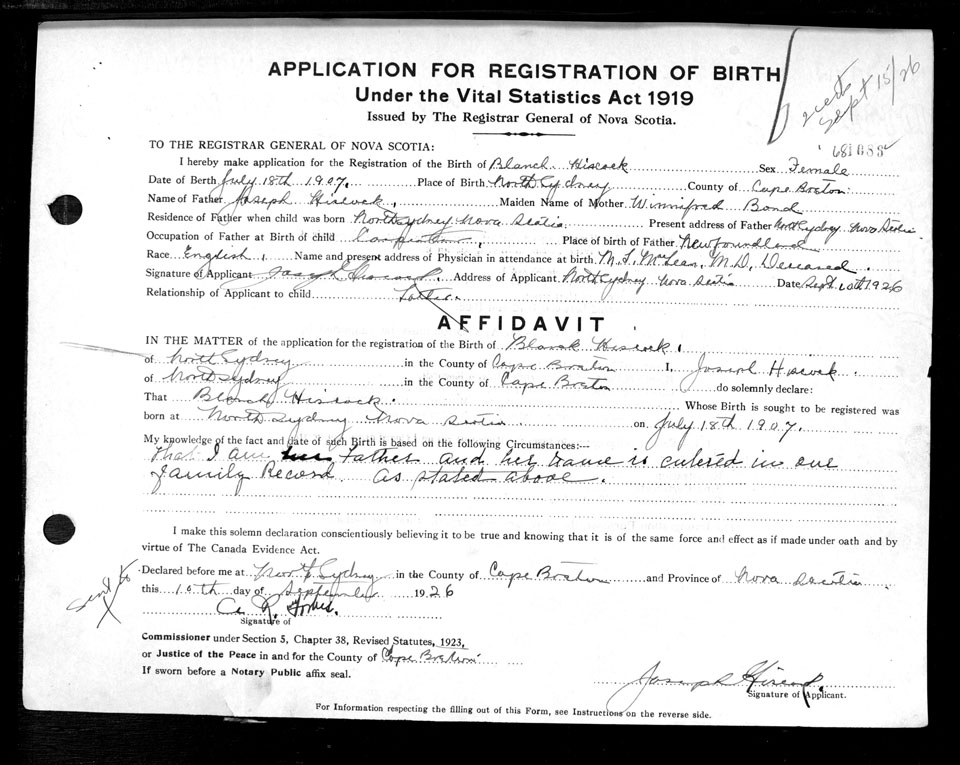 APPLICATION FOR REGISTRATION OF BIRTH
Under the Vital Statistics Act 1919
Issued by The Registrar General of Nova Scotia.
Sept 15/26
TO THE REGISTRAR GENERAL OF NOVA SCOTIA:
I hereby make application for the Registration of the Birth of Blanch Hiscock Sex Female
Date of Berth July 18th 1907. Place of Birth North Sydney County of Cape Breton
Name of Father Joseph Hiscock, Maiden Name of Mother Winnifred Bond
Residence of Father when child was born North Sydney Nova Scotia Present address of Father North Sydney Nova Scotia
Occupation of Father at Berth of child Carpenter, Place of birth of Father Newfoundland
Race English, Name and present address of Physician in attendance at birth M. T. McLean, M.D, Deceased.
Signature of Applicant Joseph Hiscock Address of Applicant North Sydney Nova Scotia Date Sept. 10th 1926
Relationship of Applicant to child Father.
AFFIDAVIT
IN THE MATTER of the application for the registration of the Birth of Blanch Hiscock.
of North Sydney in the County of Cape Breton I, Joseph Hiscock
of North Sydney in the County of Cape Breton do solemnly declare:
That Blanch Hiscock. Whose Birth is sought to be registered was
born at North Sydney Nova Scotia on July 18th 1907.
My knowledge of the fact and date of such Birth is based on the following Circumstances:—
that I am her Father and her name is entered in our
family Record. As stated above.
I make this solemn declaration conscientiously believing it to be true and knowing that it is of the same force and effect as if made under oath and by
virtue of The Canada Evidence Act.
Sent to
Declared before me at North Sydney in the County of Cape Breton and Province of Nova Scotia
this 10th day of September 1926
Signature of
Commissioner under Section 5, Chapter 38, Revised Statutes, 1923,
or Justice of the Peace in and for the County of Cape Breton
If sworn before a Notary Public affix seal.
Joseph Hiscock.
Signature of Applicant.
For Information respecting the filling out of this Form, see Instructions on the reverse side.